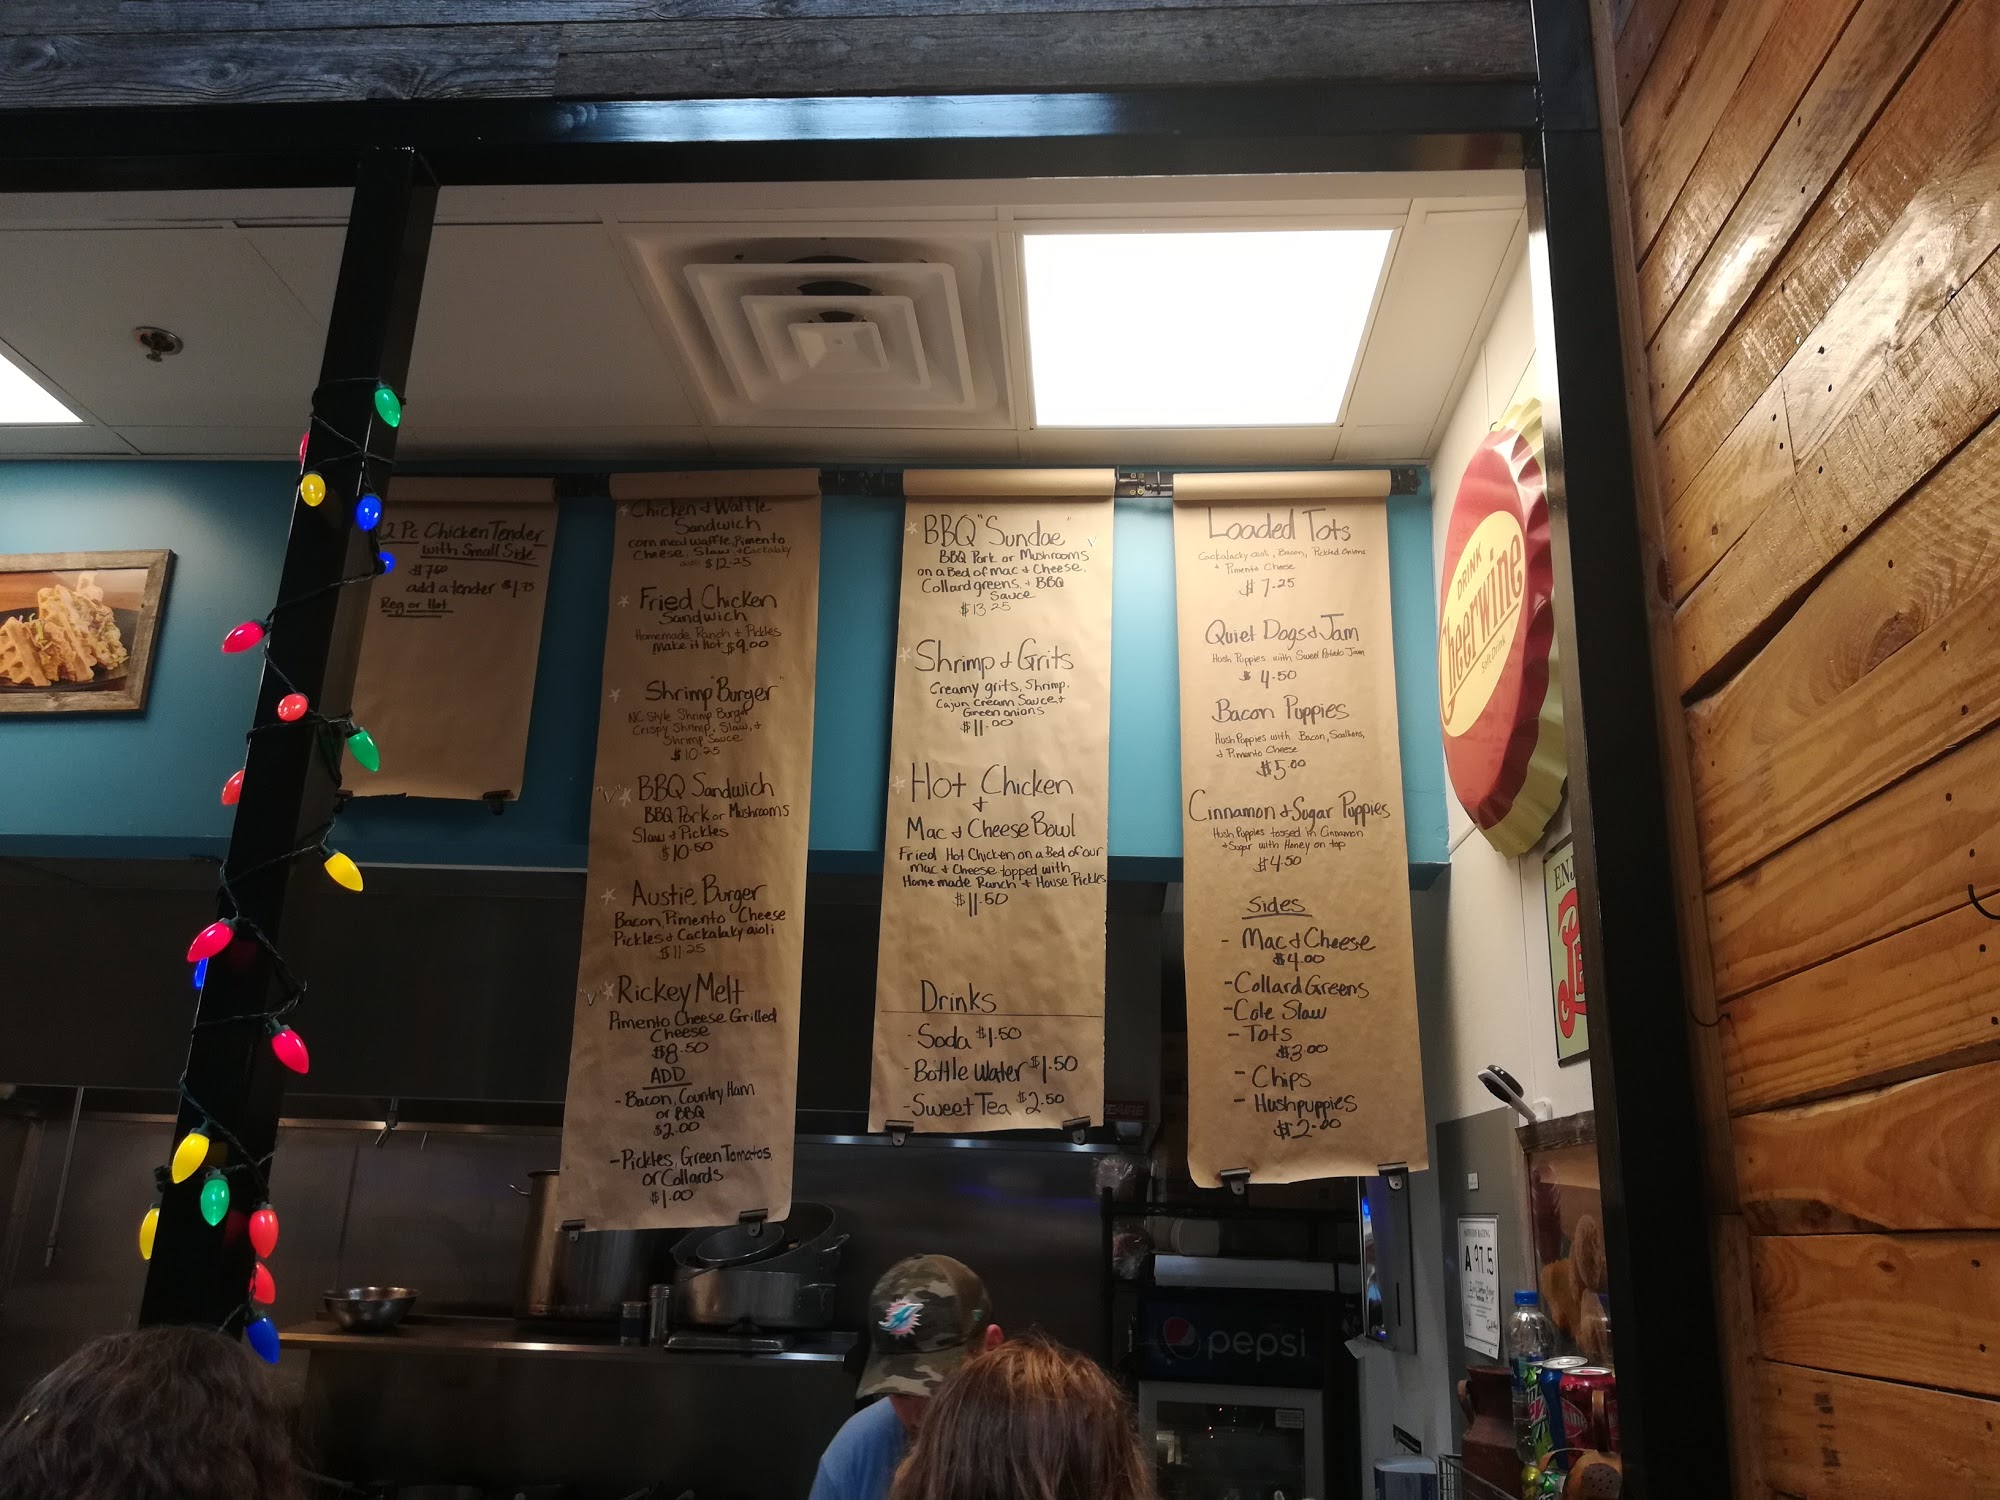 2 Pc Chicken Tender
with Small Side
add a tender $1.75
Reg or Hot
Chicken & Waffle
Sandwich
corn meal waffle, Pimento
Cheese, Slaw, & Cackalaky
aioli $12.25
Fried Chicken
Sandwich
Homemade Ranch & Pickles
Make it Hot $9.00
Shrimp "Burger"
NC Style Shrimp Burger
Crispy Shrimp, Slaw, &
Shrimp Sauce
$10.25
"V" BBQ Sandwich
BBQ Pork or Mushrooms
Slaw & Pickles
$10.50
Austie Burger
Bacon, Pimento Cheese
Pickles & Cackalaky aioli
$11.25
"V" Rickey Melt
Pimento Cheese Grilled
Cheese
$8.50
ADD
- Bacon, Country Ham
or BBQ
$2.00
- Pickles, Green Tomatos,
or Collards
$1.00
BBQ "Sundae" V
BBQ Pork or Mushrooms
on a Bed of Mac & Cheese,
Collard greens, & BBQ
Sauce
$13.25
Shrimp & Grits
Creamy grits, Shrimp,
Cajun Cream Sauce, &
Green onions
$11.00
Hot Chicken
&
Mac & Cheese Bowl
Fried Hot Chicken on a Bed of our
Mac & Cheese topped with
Homemade Ranch & House Pickles
$11.50
Drinks
- Soda $1.50
- Bottle Water $1.50
- Sweet Tea $2.50
Loaded Tots
Cackalacky aioli, Bacon, Pickled Onions
& Pimento Cheese
$7.25
Quiet Dogs & Jam
Hush Puppies with Sweet Potato Jam
$4.50
Bacon Puppies
Hush Puppies with Bacon, Scallions,
& Pimento Cheese
$5.00
Cinnamon & Sugar Puppies
Hush Puppies tossed in Cinnamon
& Sugar with Honey on top
$4.50
Sides
- Mac & Cheese
$4.00
- Collard Greens
- Cole Slaw
- Tots
$3.00
- Chips
- Hushpuppies
$2.00
DRINK
Cheerwine
Soft Drink
A 97.5
pepsi